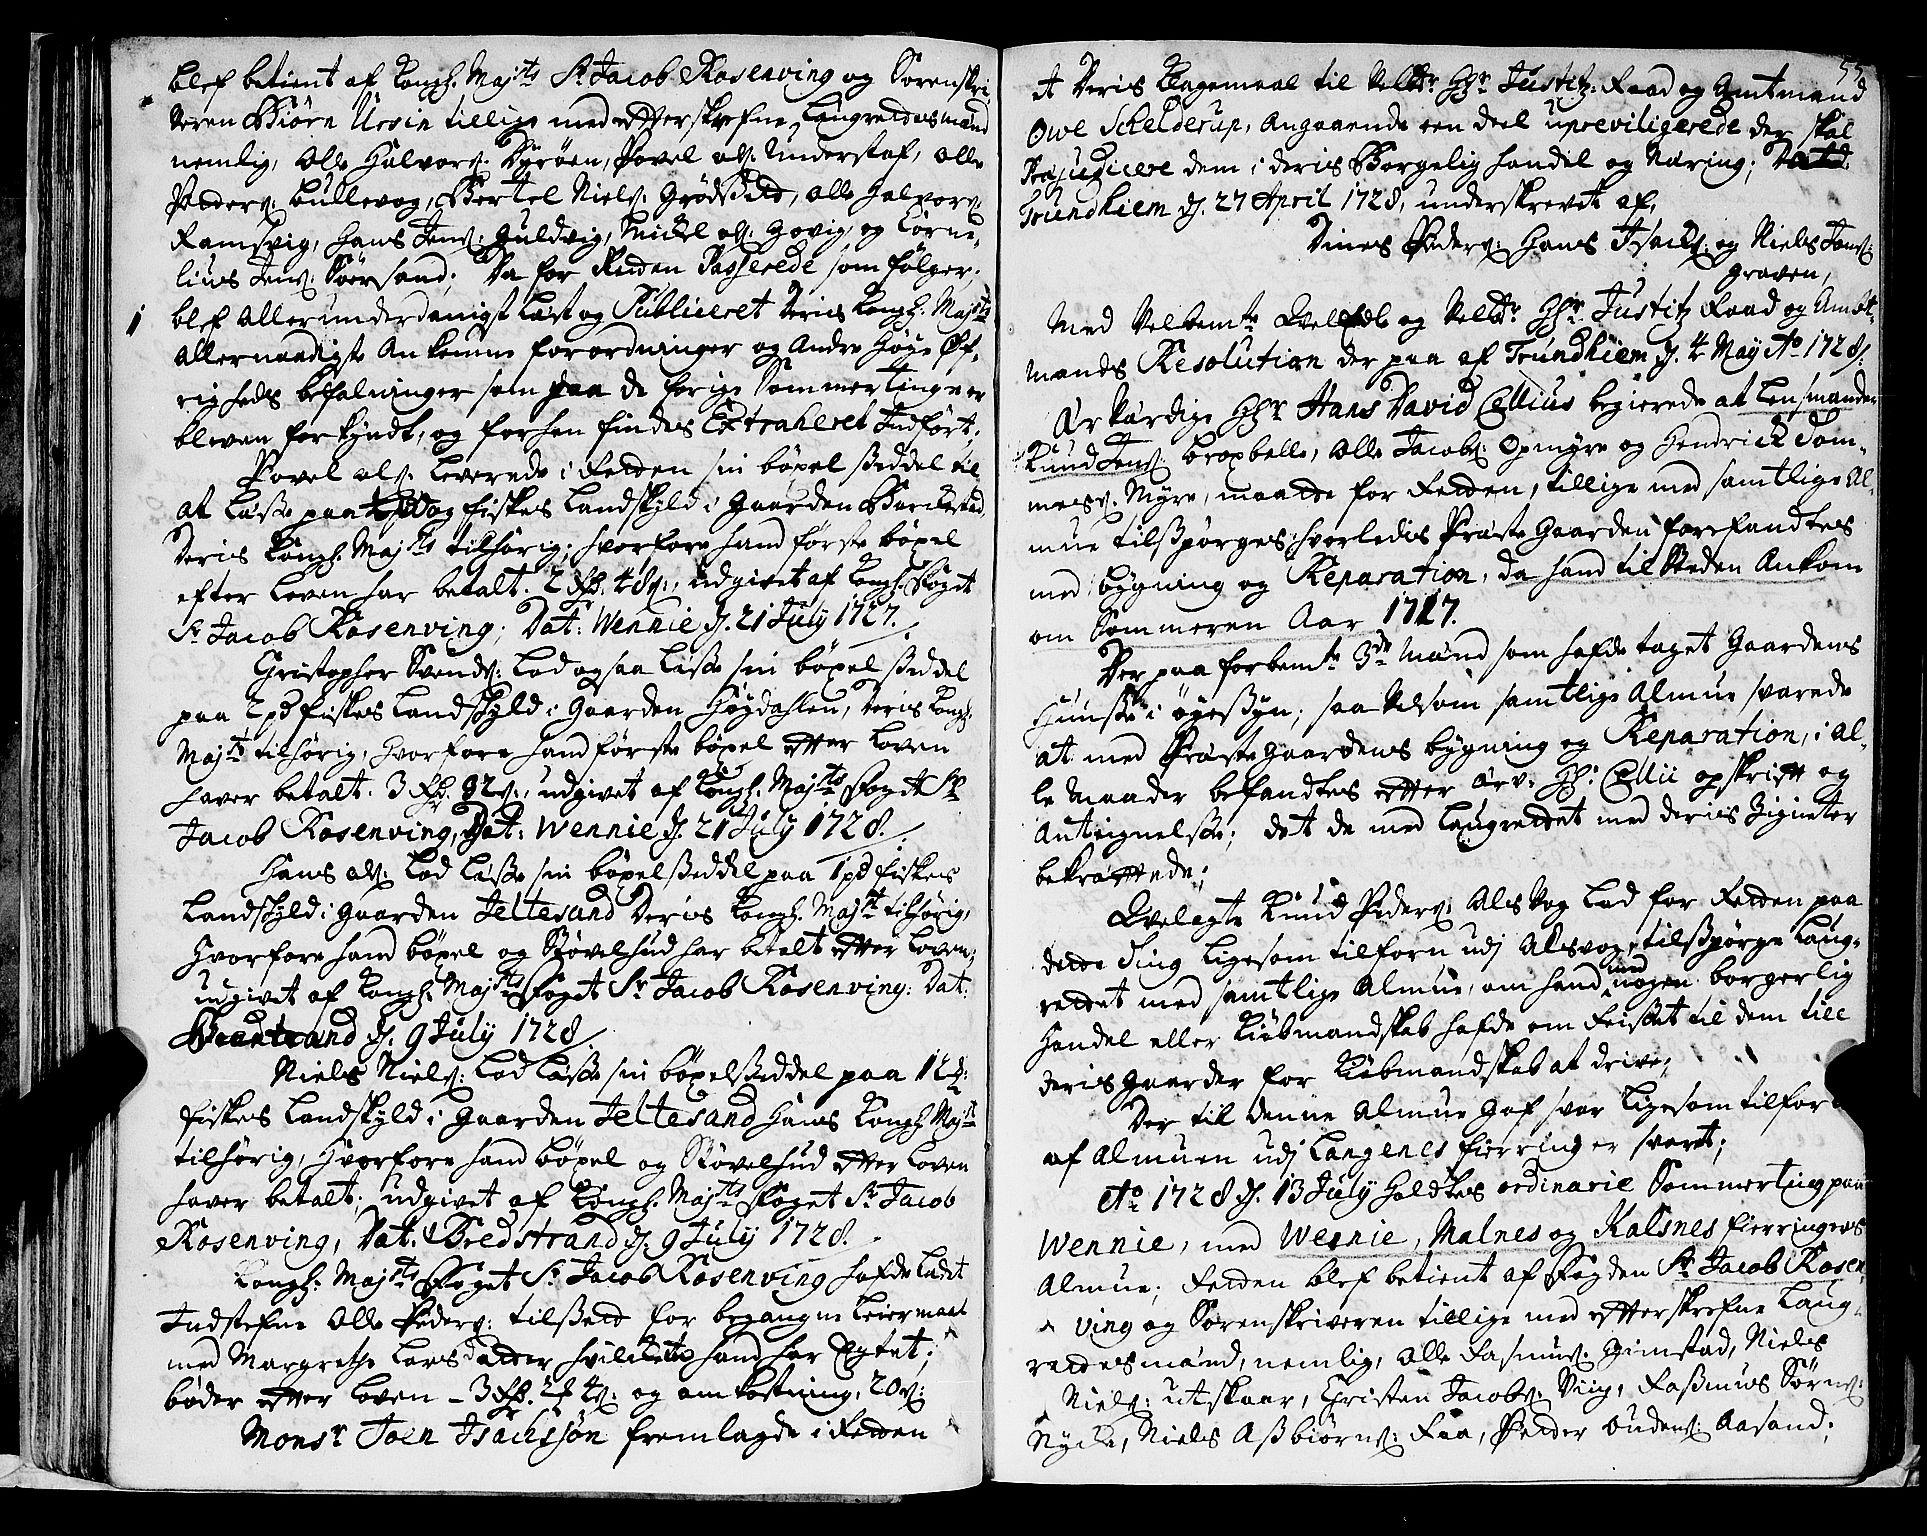 blef betient af Kongl. Majts Sr Jacob Rosenving og Sorenskri-
veren Biörn Ursin tillige med efterskrefne Laugrettesmænd
nemlig, Olle Halvors: Dyröen, Povel ols: Understaf, Olle
Peders: Bullevog, Bertel Niels: Grödßæd, Olle Halvors:
Ramsvig, Hans Jens: Guldvig, Mickel ols: Hovig, og Corne-
lius Jens: Sörsand; Da for Retten Passerede som fölger,
1 blef Allerunderdanigst Læst og Publiceret Deris Kongl. Majts
Allernaadigste Ankomne forordninger og Andre Höye Öf-
righeds befalninger som paa de forige Sommertinge er
bleven forkyndt, og forhen findes Extraheret Indfört.
Povel ols: Leverede i Retten sin böxelßeddel til
at Læse paa 1 Vog fiskes Landskyld i Gaarden
Deris Kongl. Majts tilhörig, hvorfore hand förste böxel
efter Loven har betalt 2 Rdr. 48 s:, udgivet af Kongl. Foget
Sr Jacob Rosenving, Dat: Wennie d. 21 July 1727.
Christopher Svends: Lod ogsaa Læse sin böxelßeddel
paa 2 pd fiskes Landskyld i Gaarden Höydahlen, Deris Kongl.
Majts tilhörig, hvorfore hand förste böxel efter Loven
haver betalt 3 Rdr. 92 s:, udgivet af Kongl. Majts Foget Sr
Jacob Rosenving, Dat: Wennie d. 21 July 1728.
Hans ols: Lod Læse sin böxelßeddel paa 1 pd fiskes
Landskyld i Gaarden Jeltesand Deris Kongl. Majts tilhörig,
hvorfore hand böxel og Stövelhud har betalt efter Loven,
udgivet af Kongl. Majts Foget Sr Jacob Rosenving: Dat:
Bredstrand d. 9 July 1728.
Niels Niels: Lod Læse sin böxelßeddel paa 12
fiskes Landskyld i Gaarden Jeltesand Hans Kongl. Majts
tilhörig, hvorfore hand böxel og Stövelhud efter Loven
haver betalt, udgivet af Kongl. Majts Foget Sr Jacob
Rosenving, Dat: Bredstrand d. 9 July 1728.
Kongl. Majts Foget Sr Jacob Rosenving hafde Ladet
Indstefne Olle Peders: tilßæd for begangne Leiermaal
med Margrethe Larsdatter hvilket hand har Egtet;
böder efter Loven - 3 Rdr. 2 f 4 s: og omkostning, 20 s:
Monsr Joen Isachsjön fremlagde i Retten
55
et Deris Klagemaal til Velb. Hr Justitz-Raad og Amtmand
Owe Schelderup, Angaaende een deel upreviligerede der skal
Præjudicere dem i deris Borgelig handel og Næring;
Trundhiem d. 27 April 1728, underskrevet af,
Dines Peders: Hans Isachs: og Niels Jons:
Graven,
Med Velbemte Velædle og Velb. Hr Justitz Raad og Amt-
mands Resolution der paa af Trundhiem d. 4 May Ao 1728.
Ærværdige Hr Hans David Cellius begierede at Lensmanden
Knud Jens: bropbelle, Olle Jacobs: Opmyre og Hendrick Tom-
mess: Myre, maatte for Retten, tillige med samtlige Al-
mue tilßpörges, hvorledis Præste Gaarden forefandtes
med bygning og Reparation, da hand til Steden Ankom
om Sommeren Aar 1717.
Der paa forbemte 3de Mænd som hafde taget Gaardens
Huuse i öyeßyn, saa velsom samtlige Almue svarede
at med Præste Gaardens bygning og Reparation, i al-
le Maader befandtes efter ærv: Hr Cellii opskrift og
Antegnelse; det de med Laugrettet med deris Zigneter
bekræftede;
Velagte Knud Peders: Alsvog Lod for Retten paa
dette Ting Ligesom tilforn udj Alsvog, tilßpörge Laug-
rettet med samtlige Almue, om hand med nogen borgerlig
Handel eller Kiöbmandskab hafde om Reißet til dem till
deris gaarder for Kiöbmandskab at drive;
Der til denne Almue Gaf svar Ligesom tilforn
af Almuen udj Langenes fierring er svart;
Ao 1728 d. 13 July Holdtes ordinarie Sommerting paa
Wennie, med Wennie, Malnes og Kalsnes fierringers
Almue; Retten blef betient af Fogden Sr Jacob Rosen-
ving og Sorenskriveren tillige med efterskrefne Laug-
rettesmænd, nemlig, Olle Rasmus: Gimstad, Niels
Niels: utskaar, Christen Jacobs: Viig, Rasmus Sörns:
Nycke, Niels Aßbiörns: Raa, Peder Oudens: Aasand;